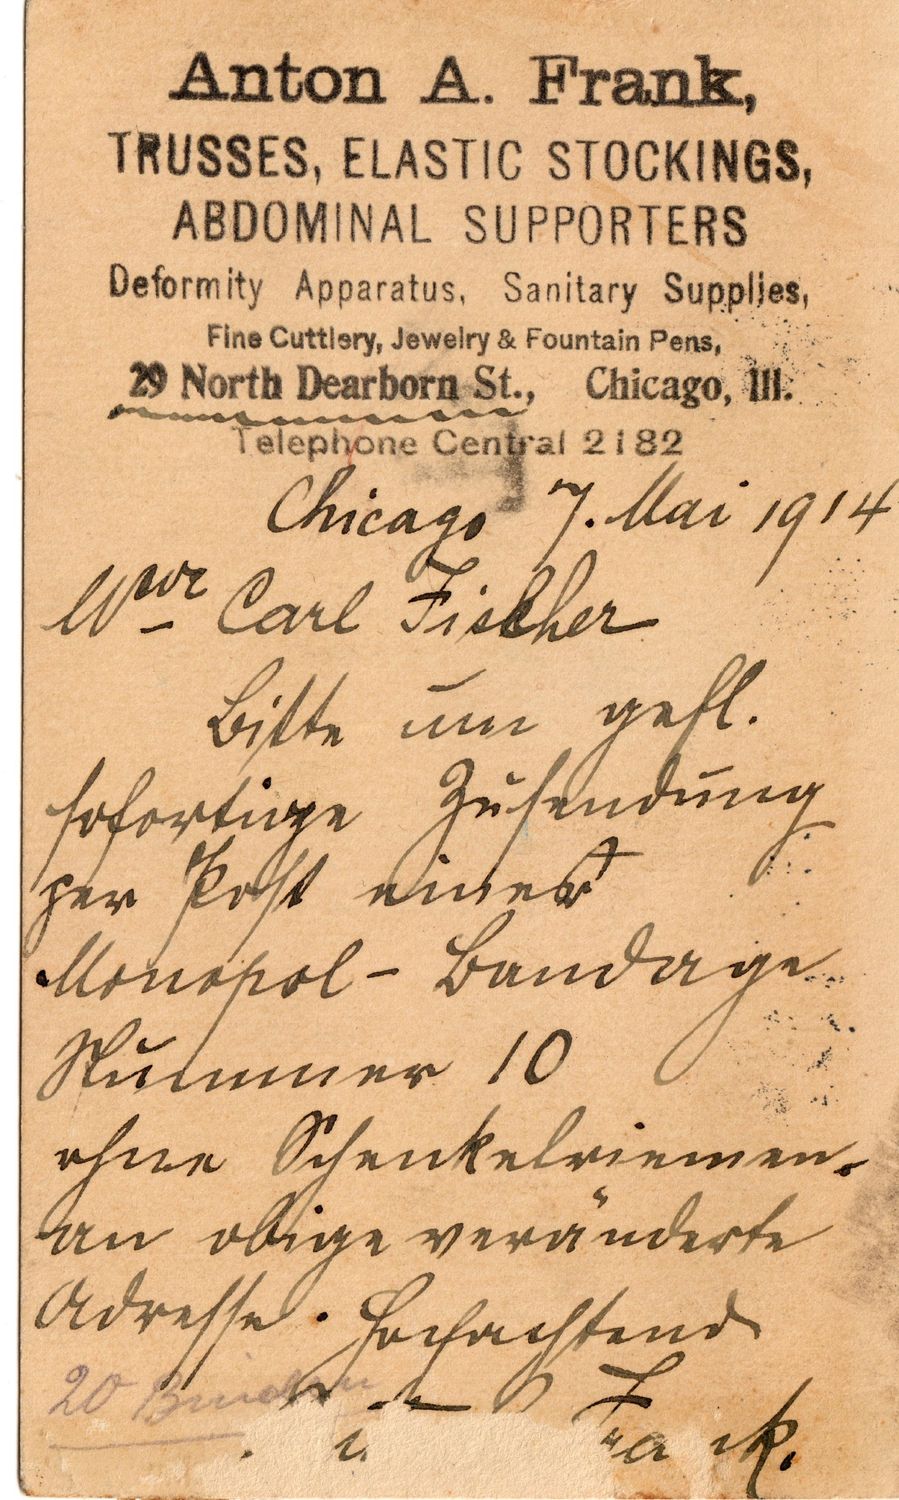 Anton A. Frank,
TRUSSES, ELASTIC STOCKINGS,
ABDOMINAL SUPPORTERS
Deformity Apparatus, Sanitary Supplies,
Fine Cuttlery, Jewelry & Fountain Pens,
29 North Dearborn St., Chicago, Ill.
Telephone Central 2182
Chicago 7. Mai 1914
Carl Fischer
Bitte um gefl.
sofortige Zusendung
per Post einer
Monopol - Bandage
Nummer 10
ohne Schenkelriemen.
an obige veränderte
Adresse. Hochachtend
20